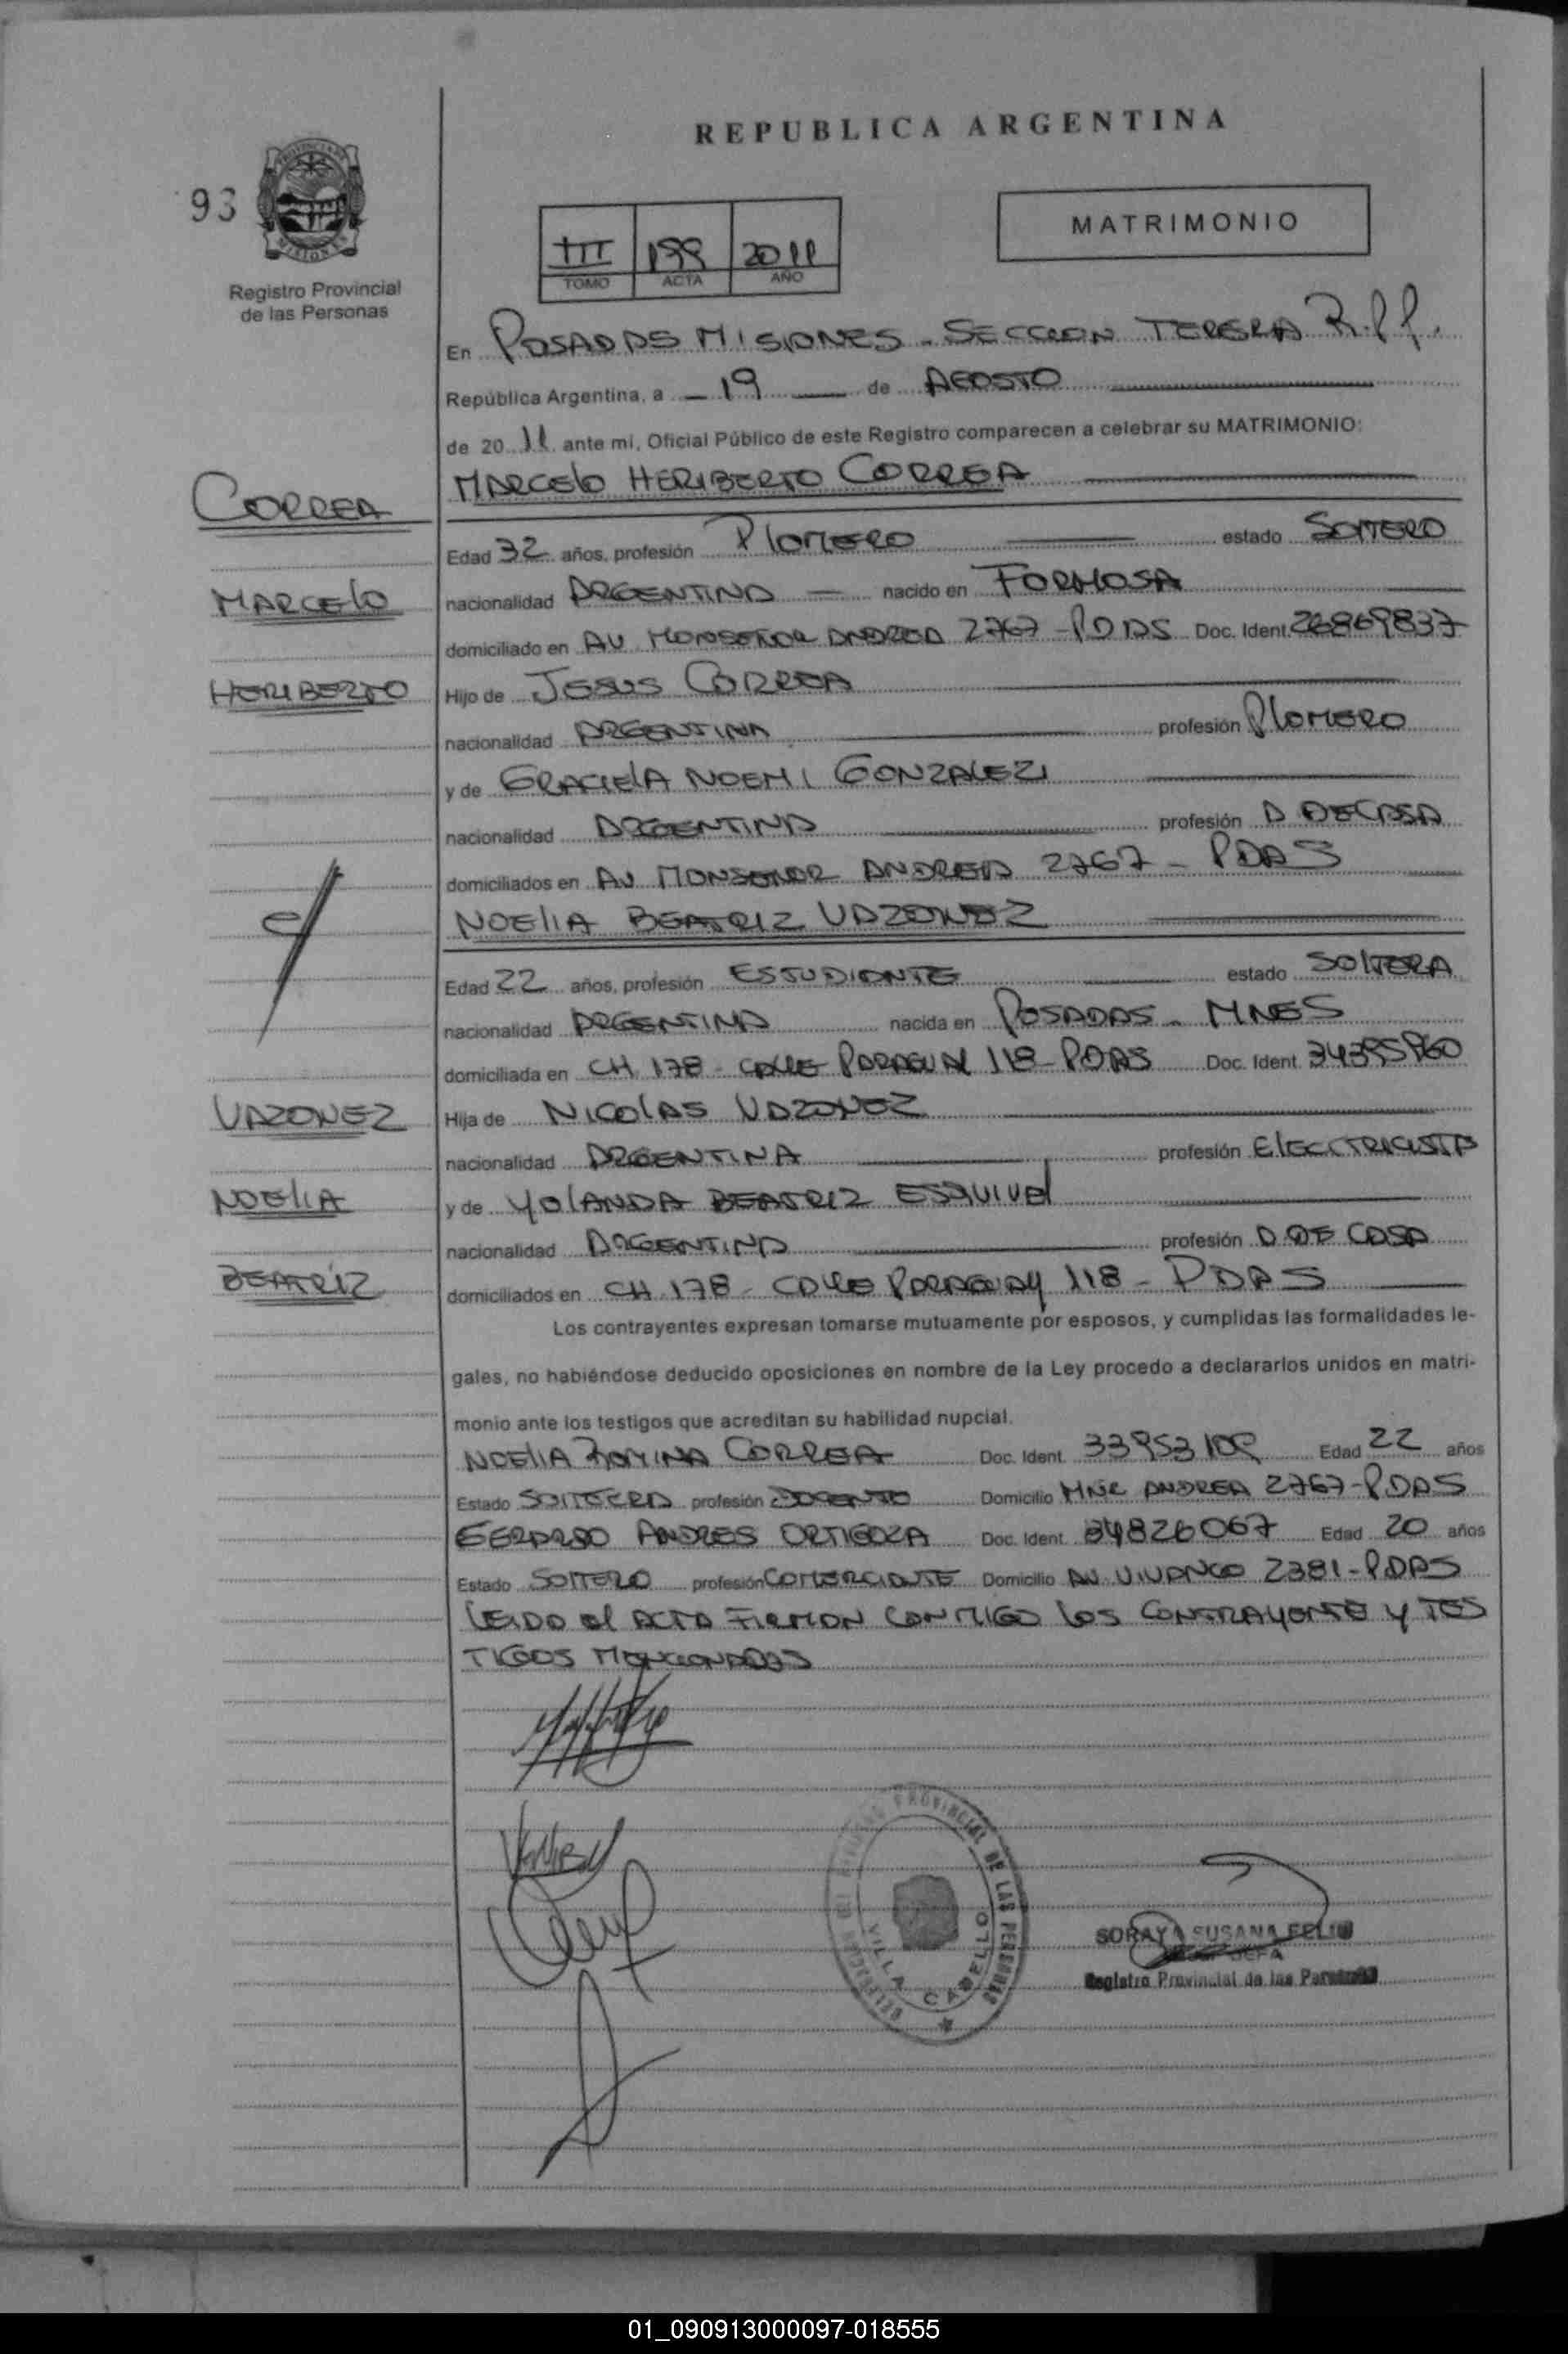 REPUBLICA ARGENTINA
93
MATRIMONIO
III 199 2011
TOMO ACTA AÑO
Registro Provincial
de las Personas
En POSADAS MISIONES - SECCION TERSRA R.P.P.
República Argentina, a 19 de AGOSTO
de 2011 ante mi, Oficial Público de este Registro comparecen a celebrar su MATRIMONIO:
MARCELO HERIBERTO CORREA
CORREA
Edad 32 años, profesión PLOMERO estado SOLTERO
MARCELO
nacionalidad ARGENTINA nacido en FORMOSA
domiciliado en AV MONSEÑOR ANDREA 2767 - PDAS Doc. Ident. 26869837
HERIBERTO
Hijo de JESUS CORREA
nacionalidad ARGENTINA profesión PLOMERO
y de GRACIELA NOEMI GONZALEZ
nacionalidad ARGENTINA profesión A DE CASA
domiciliados en AV MONSEÑOR ANDREA 2767 - PDAS
NOELIA BEATRIZ VAZQUEZ
Edad 22 años, profesión ESTUDIANTE estado SOLTERA
nacionalidad ARGENTINA nacida en POSADAS - MNES
domiciliada en CH 178 - CALLE PARAGUAY 118 - PDAS Doc. Ident.
VAZQUEZ
Hija de NICOLAS VAZQUEZ
nacionalidad ARGENTINA profesión ELECTRICISTA
NOELIA
y de YOLANDA BEATRIZ ESQUIVEL
nacionalidad ARGENTINA profesión A DE CASA
BEATRIZ
domiciliados en CH 178 - CALLE PARAGUAY 118 - PDAS
Los contrayentes expresan tomarse mutuamente por esposos, y cumplidas las formalidades le-
gales, no habiéndose deducido oposiciones en nombre de la Ley procedo a declararlos unidos en matri-
monio ante los testigos que acreditan su habilidad nupcial.
NOELIA ROMINA CORREA Doc. Ident. 33953109 Edad 22 años
Estado SOLTERA profesión DOCENTE Domicilio MÑR ANDREA 2767 - PDAS
GERARDO ANDRES ORTIGOZA Doc. Ident. 34826067 Edad 20 años
Estado SOLTERO profesión COMERCIANTE Domicilio AV VIVANCO 2381 - PDAS
LEIDO EL ACTA FIRMAN CONMIGO LOS CONTRAYENTE Y TES
TIGOS MENCIONADOS
REGISTRO PROVINCIAL DE LAS PERSONAS
DELEGACION
VILLA CABELLO
SORAYA SUSANA FELIU
JEFA
Registro Provincial de las Personas
01_090913000097-018555